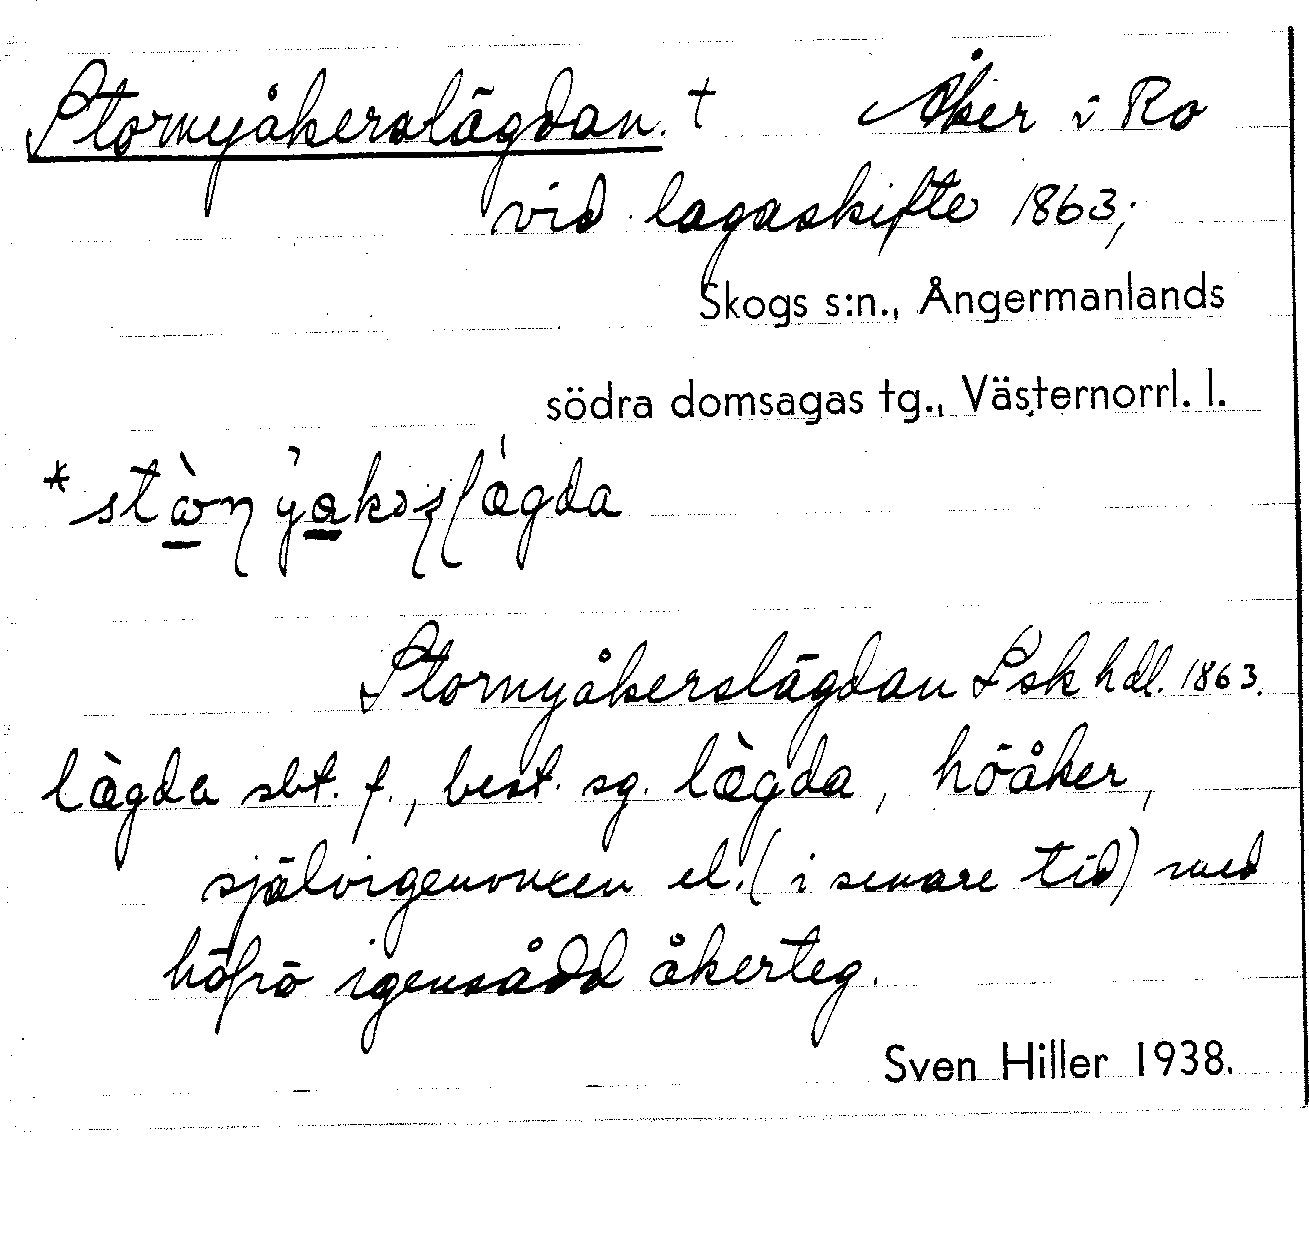 Stornyåkerslägdan. † Åker i Ro
vid lagaskifte 1863;
Skogs s:n., Ångermanlands
södra domsagas tg., Västernorrl. l.
Stornyåkerslägdan Lsk hdl. 1863.
lægda sbt. f., best. sg. lægda, höåker,
självigenvuxen el. (i senare tid) med
höfrö igensådd åkerteg.
Sven Hiller 1938.